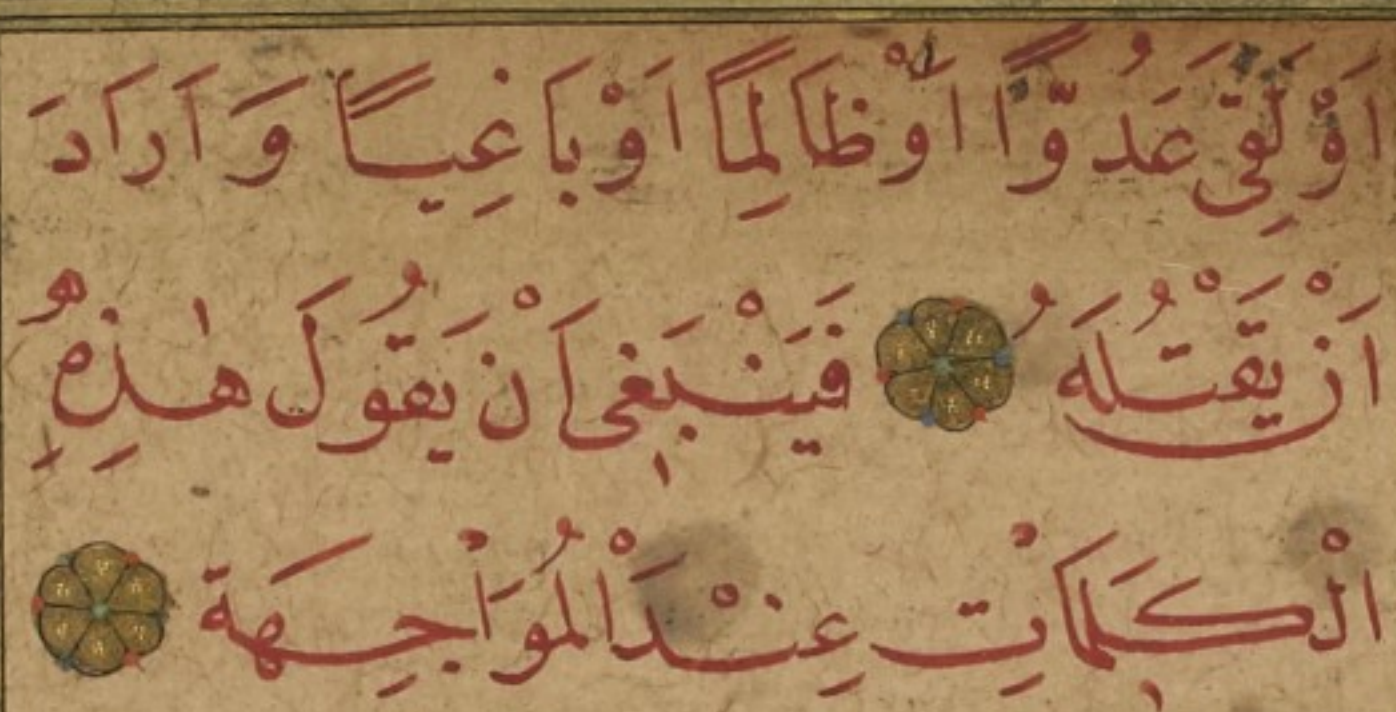 اَوْ لَقِىَ عَدُوًّا اَوْ ظَالِمًا اَوْ بَاغِيًا وَ اَرَادَ
اَنْ يَقْتُلَهُ فَيَنْبَغِى اَنْ يَقُولَ هٰذِهِ
الْكَلِمَاتِ عِنْدَ الْمُوَاجِهَةِ